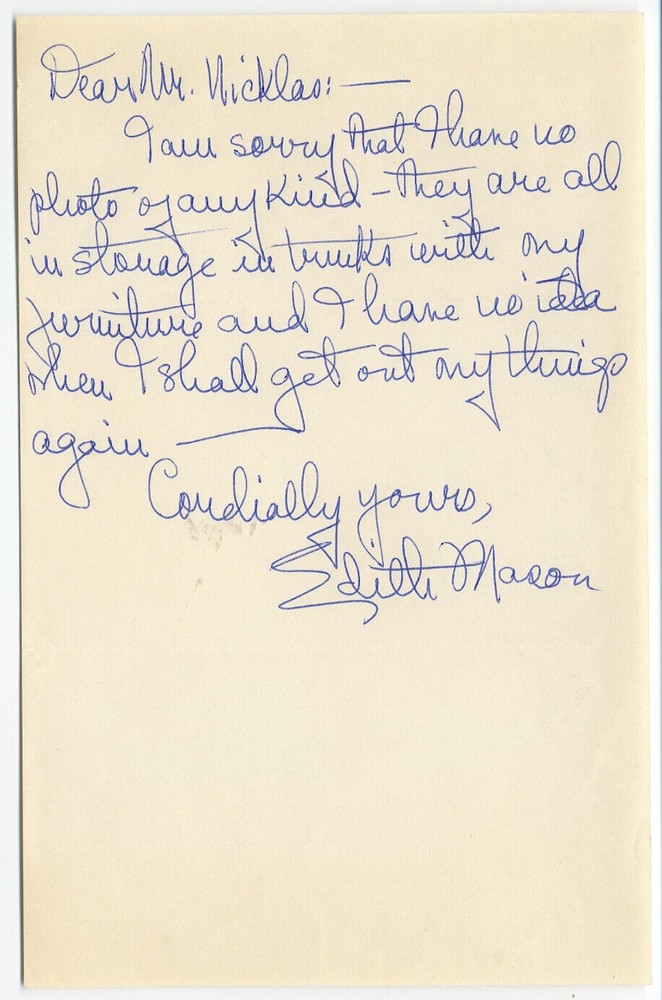 Dear Mr. Nicklas: —
I am sorry that I have no
photo of any kind – they are all
in storage in trunks with my
furniture and I have no idea
when I shall get out my things
again —
Cordially yours,
Edith Mason